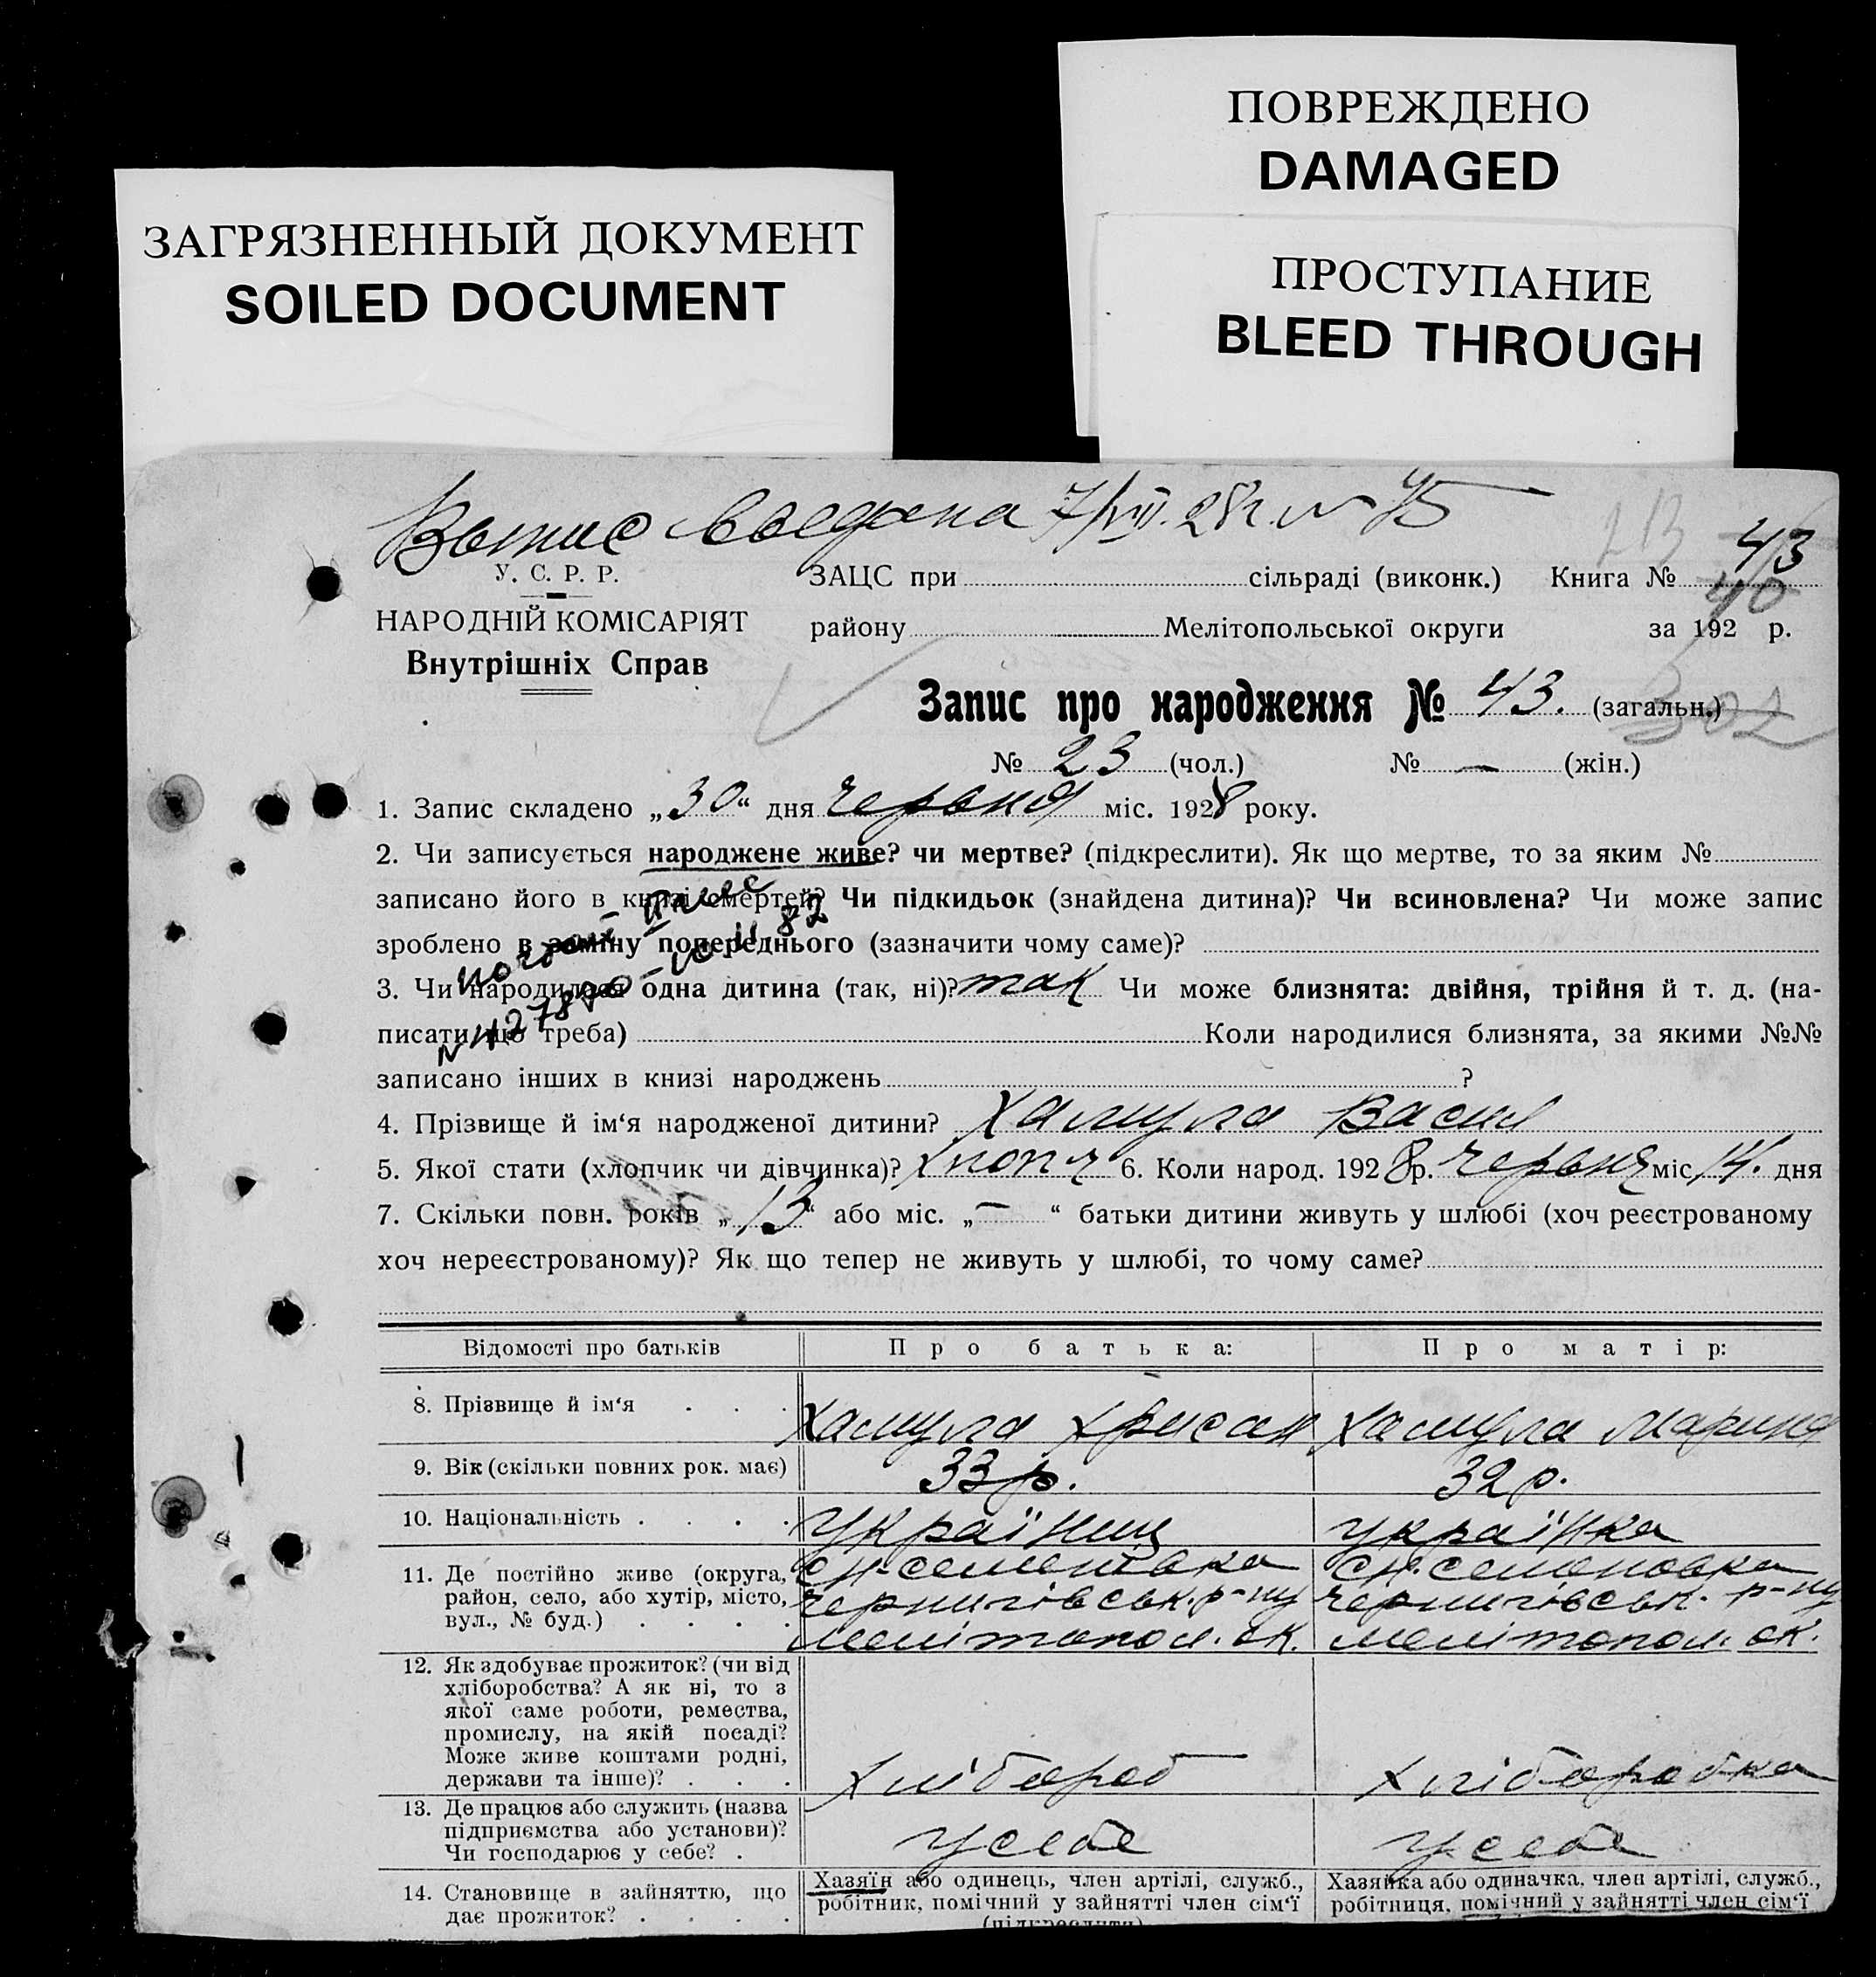 ПОВРЕЖДЕНО
DAMAGED
ЗАГРЯЗНЕННЫЙ ДОКУМЕНТ
SOILED DOCUMENT
ПРОСТУПАНИЕ
BLEED THROUGH
7/VII.28г. № 75
43
У. С. Р. Р.
ЗАЦС при сільраді (виконк.) Книга №
40
НАРОДНІЙ КОМІСАРІЯТ
району Мелітопольської округи за 192 р.
Внутрішніх Справ
Запис про народження № 43. (загальн.)
№ 23 (чол.) № — (жін.)
1. Запис складено „30“ дня червня міс. 1928 року.
2. Чи записується народжене живе? чи мертве? (підкреслити). Як що мертве, то за яким №
записано його в книзі смертей? Чи підкидьок (знайдена дитина)? Чи всиновлена? Чи може запис
зроблено в заміну попереднього (зазначити чому саме)?
3. Чи народилася одна дитина (так, ні)? так Чи може близнята: двійня, трійня й т. д. (на-
писати що треба) Коли народилися близнята, за якими №№
записано інших в книзі народжень ?
4. Прізвище й ім‘я народженої дитини? Хамула Васил
5. Якої стати (хлопчик чи дівчинка)? хлопч 6. Коли народ. 1928 р. червня міс. 14. дня
7. Скільки повн. років „13“ або міс. „—“ батьки дитини живуть у шлюбі (хоч реєстрованому
хоч нереєстрованому)? Як що тепер не живуть у шлюбі, то чому саме?
Відомості про батьків Про батька: Про матір:
8. Прізвище й ім‘я . . . Хамула Хрисан Хамула Марина
9. Вік (скільки повних рок. має) 33 р. 32 р.
10. Національність . . . . Українец українка
11. Де постійно живе (округа, сн-семенівка сн. семеновка
район, село, або хутір, місто, чернигівськ. р-ну чернигівськ. р-ну
вул., № буд.) . . . . мелітопол. ок. мелітопол. ок.
12. Як здобуває прожиток? (чи від
хліборобства? А як ні, то з
якої саме роботи, ремества,
промислу, на якій посаді?
Може живе коштами родні,
держави та інше)? . . . хлібороб хлібаробка
13. Де працює або служить (назва
підприємства або установи)?
Чи господарює у себе? . усебе усебе
14. Становище в зайняттю, що
дає прожиток? . . . .
Хазяїн або одинець, член артілі, служб.,
робітник, помічний у зайнятті член сім‘ї
(підкреслити)
Хазяйка або одиначка, член артілі, служб.,
робітниця, помічний у зайнятті член сім‘ї